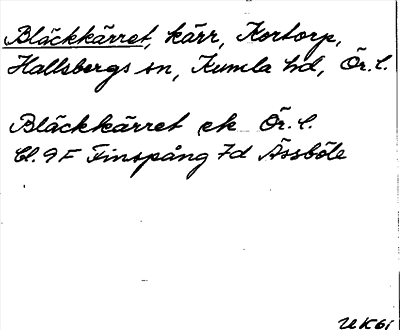 Bläckkärret, kärr, Kortorp,
Hallsbergs sn, Kumla hd, Ör. l.
Bläckkärret ek Ör. l.
Bl. 9F Finspång 7d Ässböle
UK61